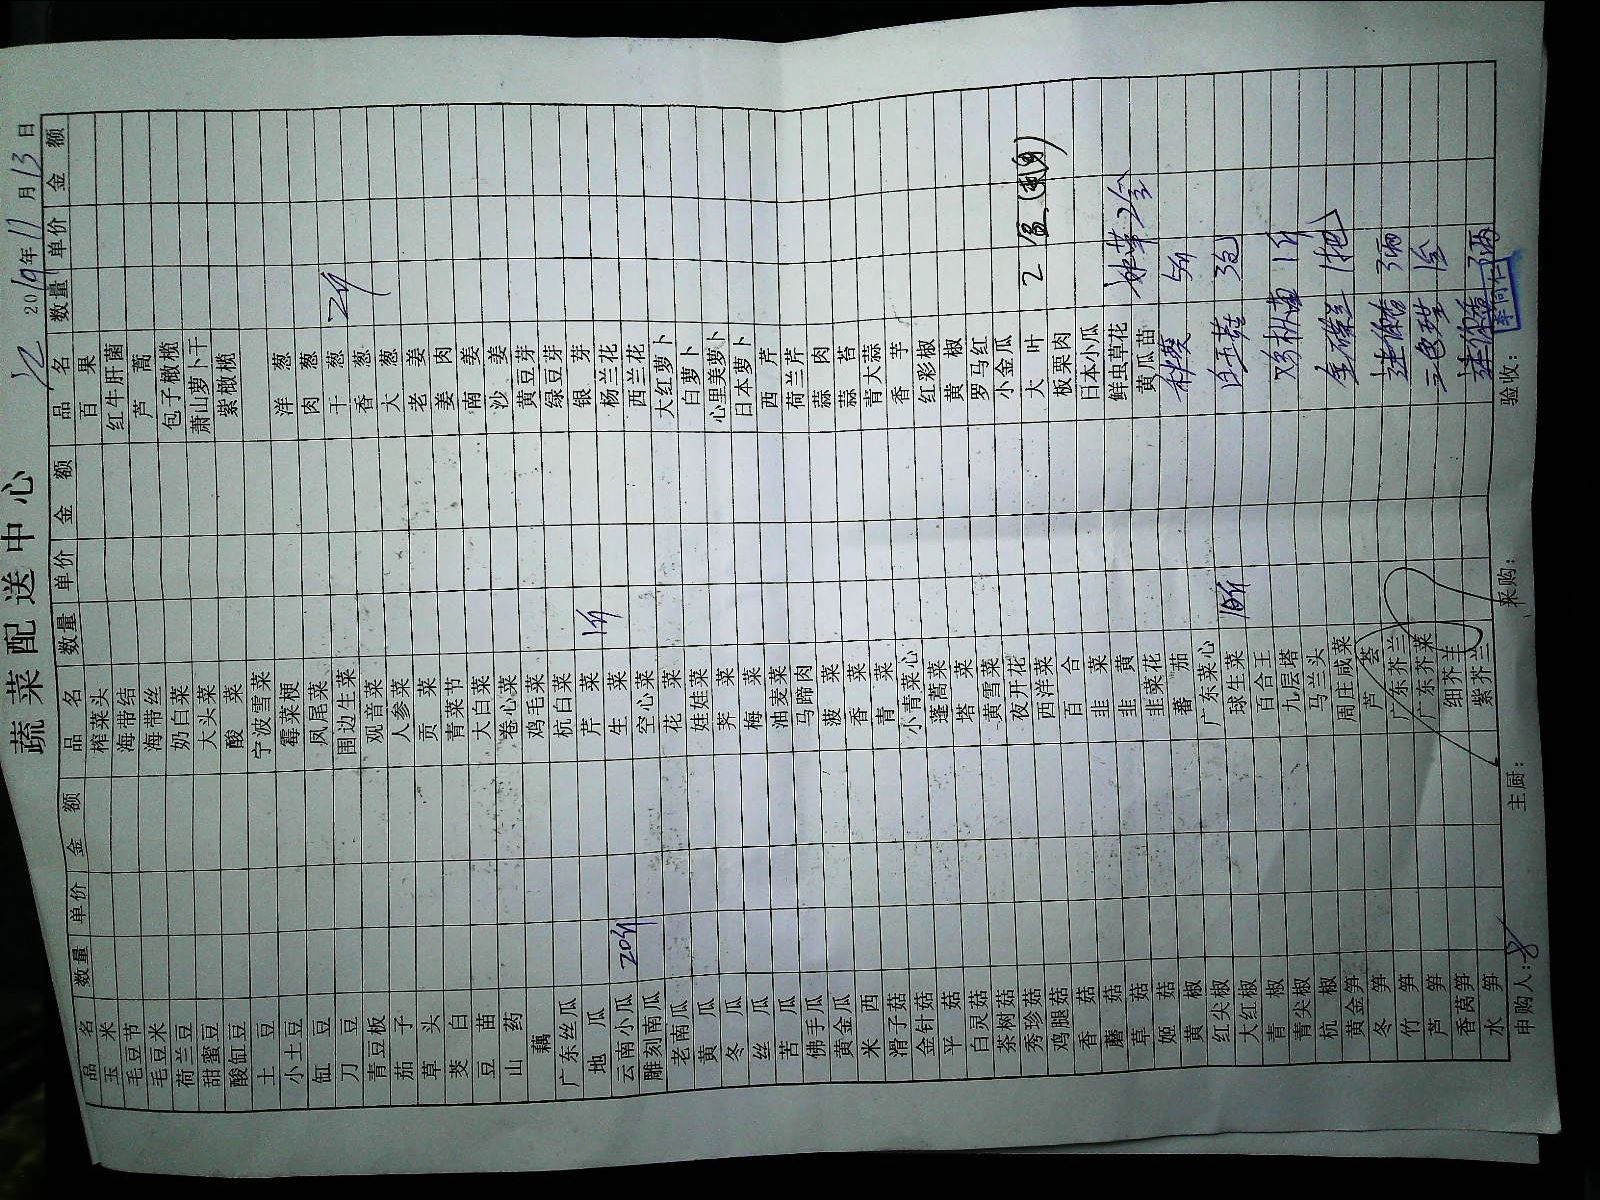 蔬菜配送中心
2019年11月13日
品名 数量 单价 金额 品名 数量 单价 金额 品名 数量 单价 金额
玉米 榨菜头 百果
毛豆节 海带结 红牛肝菌
毛豆米 海带丝 芦蒿
荷兰豆 奶白菜 包子橄榄
甜蜜豆 大头菜 萧山萝卜干
酸缸豆 酸菜 紫橄榄
土豆 宁波雪菜
小土豆 霉菜梗 洋葱
缸豆 凤尾菜 肉葱
刀豆 围边生菜 干葱 2斤
青豆板 观音菜 香葱
茄子 人参菜 大葱
草头 贡菜 老姜
茭白 青菜节 姜肉
豆苗 大白菜 南姜
山药 卷心菜 沙姜
藕 鸡毛菜 黄豆芽
广东丝瓜 杭白菜 绿豆芽
地瓜 芹菜 1斤 银芽
云南小瓜 20斤 生菜 杨兰花
雕刻南瓜 空心菜 西兰花
老南瓜 花菜 大红萝卜
黄瓜 娃娃菜 白萝卜
冬瓜 荠菜 心里美萝卜
丝瓜 梅菜 日本萝卜
苦瓜 油麦菜 西芹
佛手瓜 马蹄肉 荷兰芹
黄金瓜 菠菜 蒜肉
米西 香菜 蒜苔
滑子菇 青菜 青大蒜
金针菇 小青菜心 香芋
平菇 蓬蒿菜 红彩椒
白灵菇 塔菜 黄椒
茶树菇 黄雪菜 罗马红
秀珍菇 夜开花 小金瓜
鸡腿菇 西洋菜 大叶 2
香菇 百合 板栗肉
蘑菇 韭菜 日本小瓜
草菇 韭黄 鲜虫草花
姬菇 韭菜花 黄瓜苗
黄椒 蕃茄 秋葵 5斤
红尖椒 广东菜心
大红椒 球生菜 10斤 白玉菇 3包
青椒 百合王
青尖椒 九层塔 1斤
杭椒 马兰头
黄金笋 周庄咸菜 1把
冬笋 芦荟
竹笋 广东芥兰 3两
芦笋 广东芥菜 三色堇 1盒
香莴笋 细芥兰
水笋 紫芥兰
申购人: 主厨: 采购: 验收: